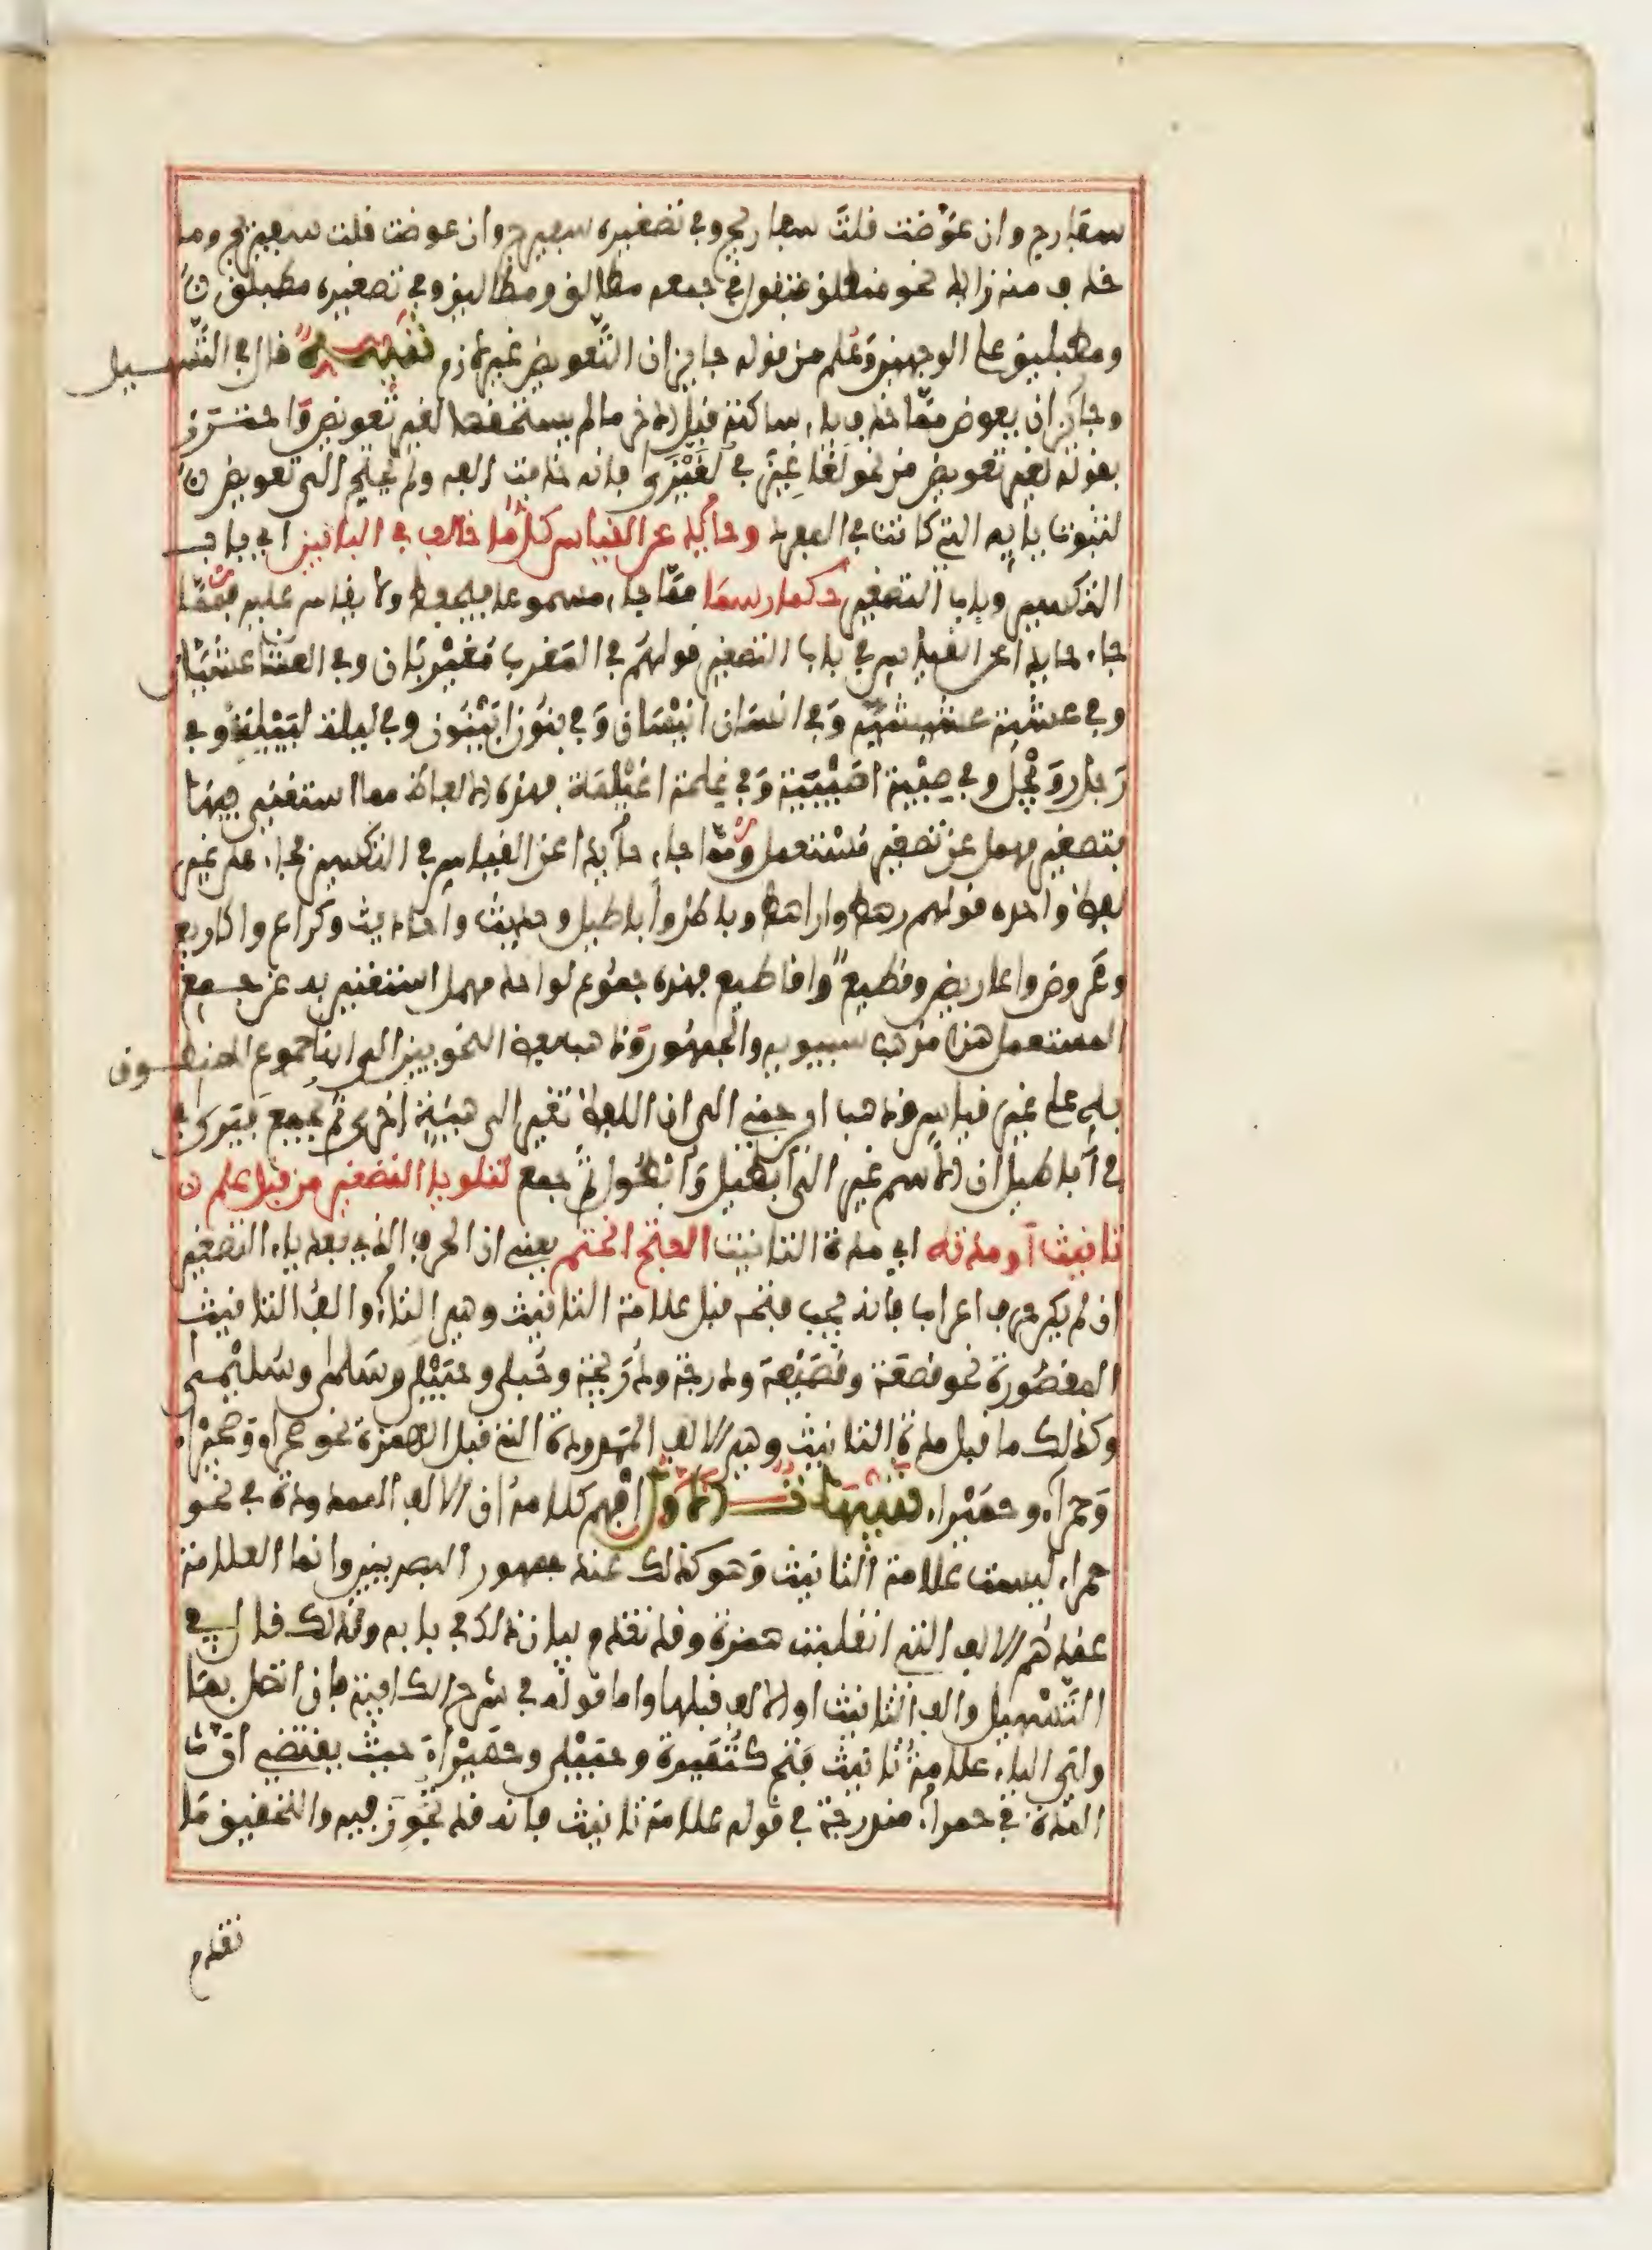 سفارج وان عوّضت قلت سفاريج وفي تصغيره سفيرج وان عوضت قلت سفيريج وما
حذف منه زايد نحو منطلق فتقول في جمعه مطالق ومطاليق وفي تصغيره مطيلق
ومطيليق على الوجهين وعُلم من قوله جايز ان التّعويض غير لازم تنبيــه قال في التّسهيل
وجائز ان يعوض ممّا حذف ياء ساكنة قبل الاخر ما لم يستحقها لغير تعويض واحترز
بقوله لغير تعويض من نحو لغاغيز في لغّيزى فانه حذفت الفه ولم يحتج الى تعويض
لثبوت يايه التي كانت في المفرد وحائد عن القياس كل ما خالف في البابين اي باب
التكسير وباب التصغير حكما رسما ممّا جاء مسموعا فيحفظ ولا يقاس عليه فممّا
جاء حايدا عن القياس في باب التصغير قولهم في المغرب مُغَيْربَان وفي العشا عشيّان
وفي عشية عشيشية وَفي انسان انيْسَان وَفي بنون ابَيْنون وفي ليلة لُيَيْلِيَة وفي
رَجل رُوَيْجل وفي صِبْية اصَيْبيَة وَفي غِلمة اغَيْلمَة فهذه الالفاظ مما استغني فيها
بتصغير مهمل عن تصغير مسْتعمل وممّا جاء حائدا عن القياس في التكسير فجاء على غير
لفظ واحده قولهم رهط واراهط وباطل وأباطيل وحديث واحاديث وكراع واكارع
وعَروض واعاريض وقطيع واقاطيع فهذه جموع لواحد مهمل استغني به عن جمع
المستعمل هذا مذهب سيبويه والجمهور وَذهب بعض النحويين الى انها جموع للمنطوق
به على غير قياس وذهب ابن جني الى ان اللفظ تغير الى هيئة اخرى ثم يجمع فيَرى في
في اباطيل ان الاسم غير الى ابطيل وَأبْطُول ثم جمع لتلو يا التصغير من قبل علم
تانيث آو مدته اي مدة التانيث الفتح انحتم يعني ان الحرف الذي بعد ياء التصغير
ان لم يكن حرف اعراب فانه يجب فتحه قبل علامة التانيث وهي التاء والف التانيث
المقصُورة نحو قصعَة وقصَيْعة ودرجة ودُرَيجة وحُبلى وحُبَيْلى وسَلمى وسُليْمى
وكذلك ما قبل مدة التانيث وهي الالف الممدودة التي قبل الهمزة نحو صحراء وصحيْراء
وَحمراء وحمَيْراء تنبيهات الاول افهم كلامه ان الالف الممدودة في نحو
حمراء ليست علامة التانيث وَهو كذلك عند جمهور البصريين وانما العلامة
عندهم الالف التي انقلبت همزة وقد تقدم بيان ذلك في بابه ولذلك قال في
التّسْهيل والف التانيث او الالف قبلها واما قوله في شرح الكافية فان اتصل بها
ولي الياء علامة تانيث فتح كتُميرة وحبيلى وحمَيْراء حيث يقتضي انّ
المدة في حمراء مندرجة في قوله علامة تانيث فانه قد تجوّز فيه والتحقيق مَا
تقدم